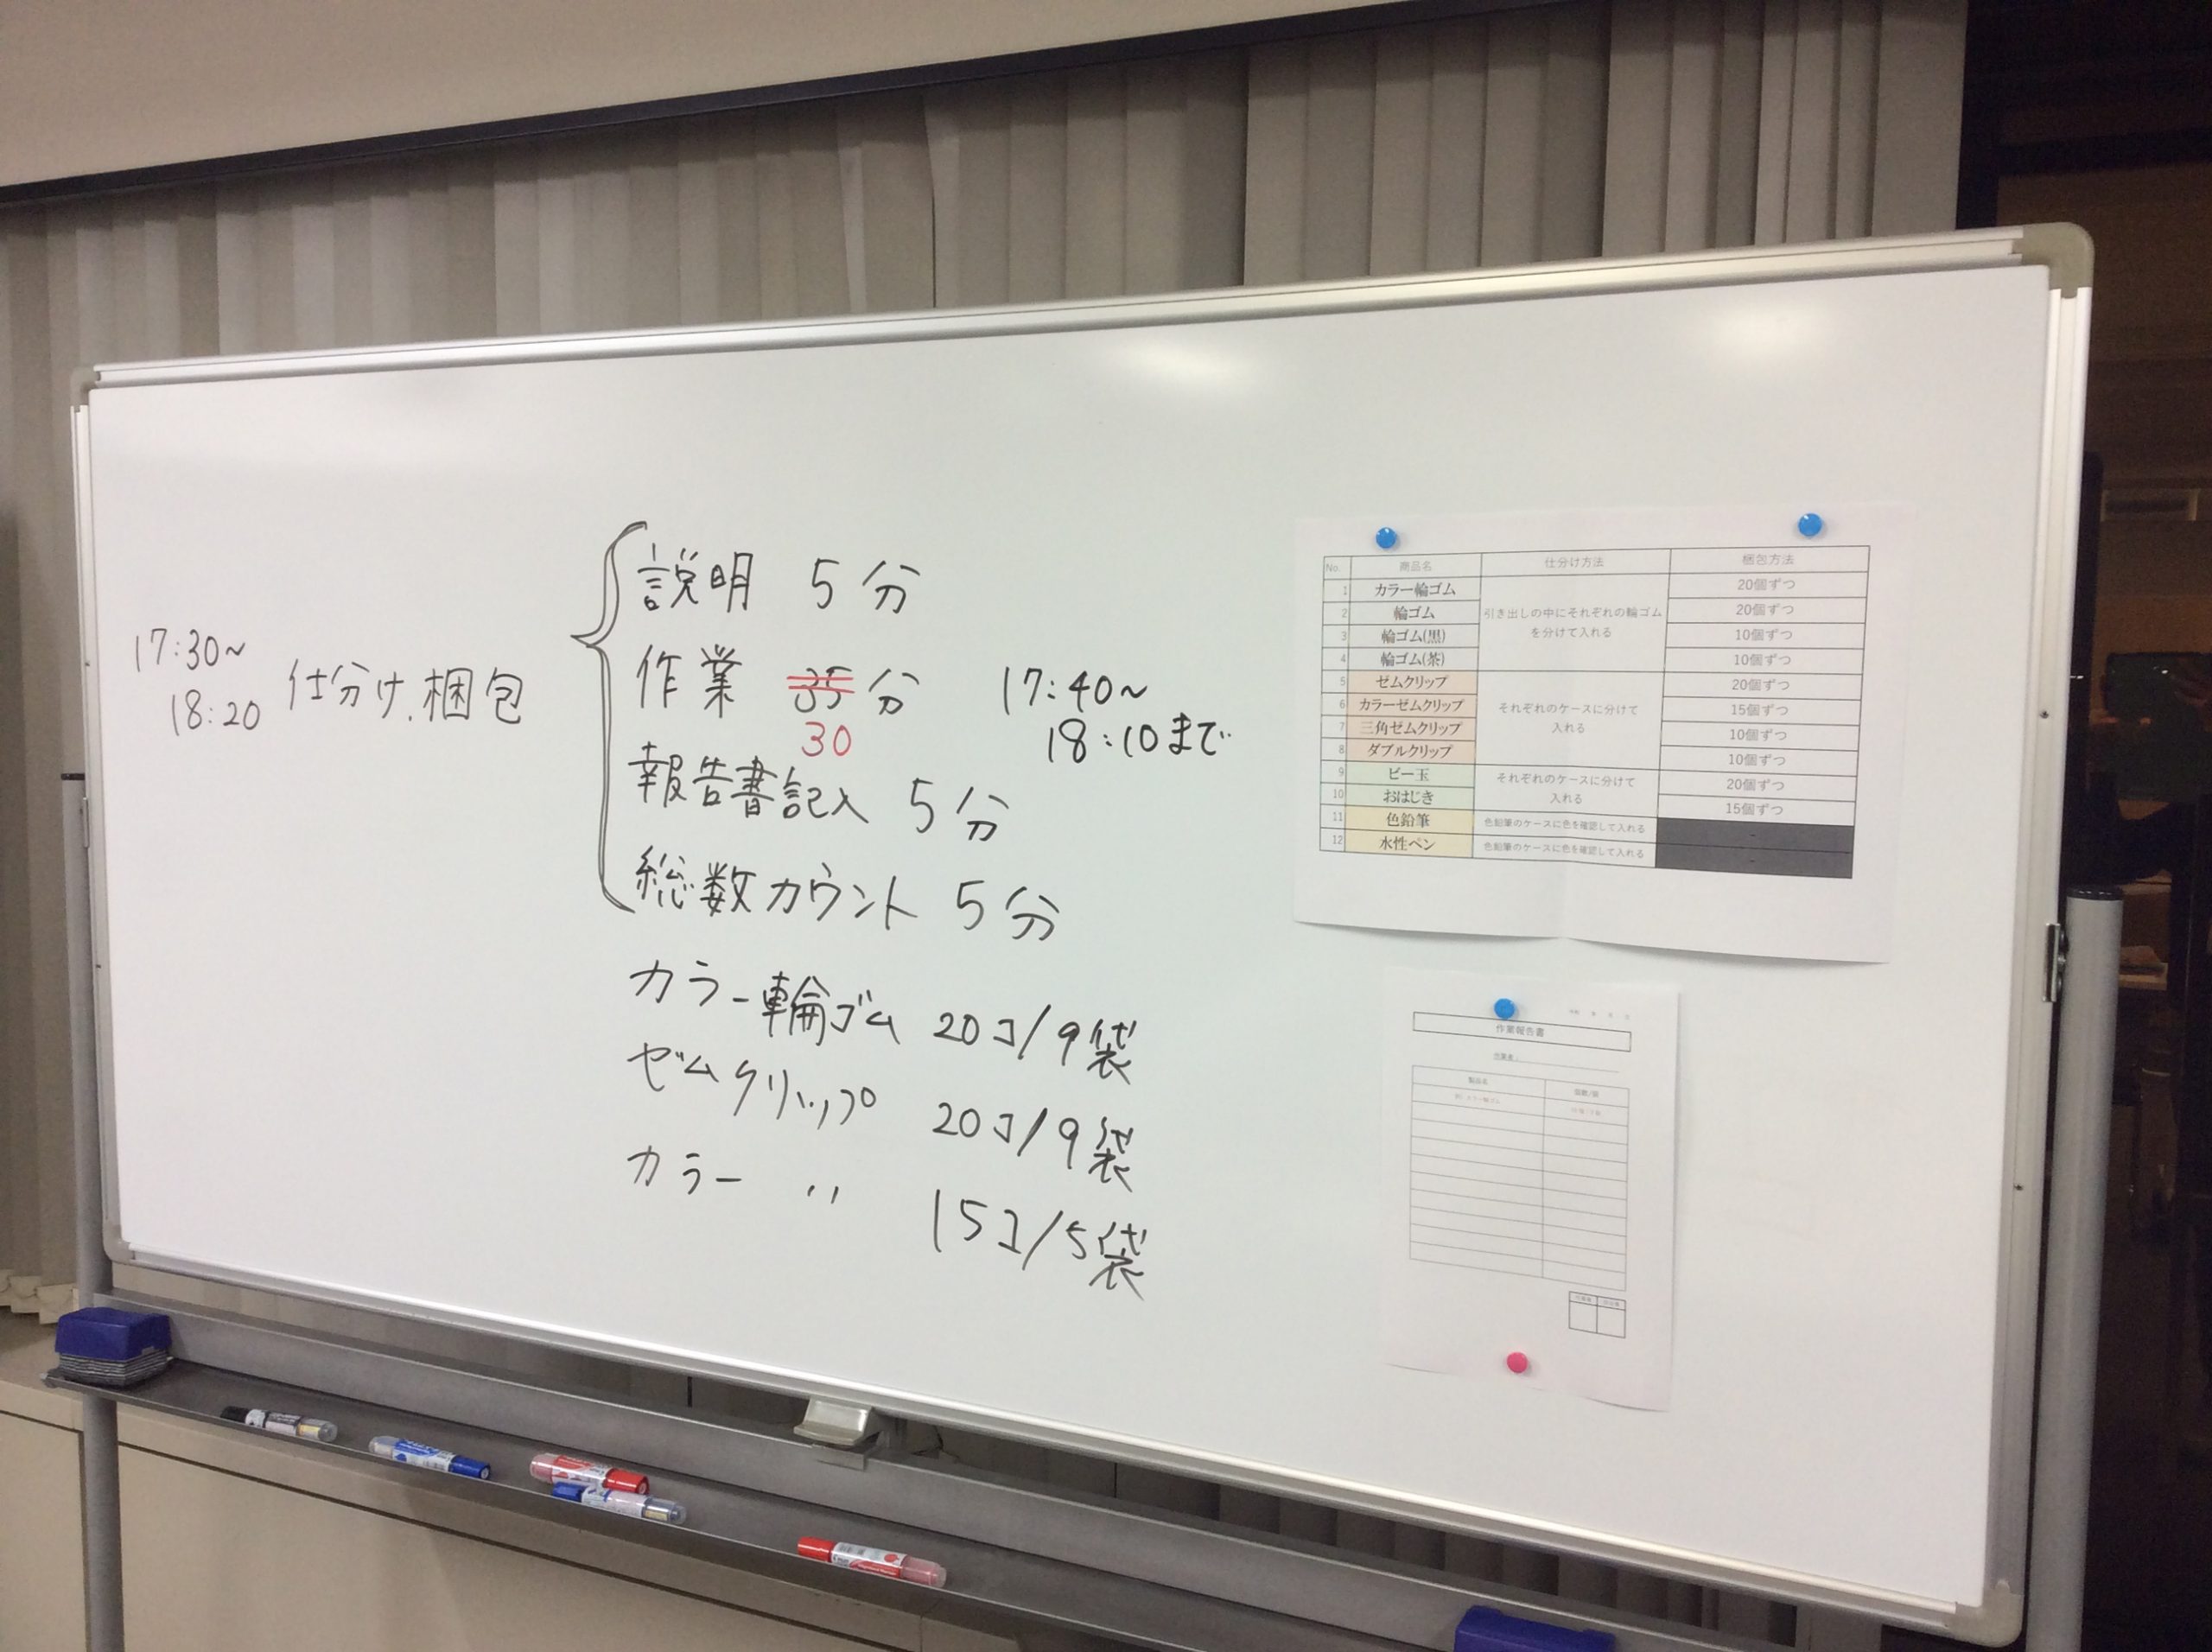 17:30～
18:20 仕分け.梱包
説明 5分
作業 35分 17:40～
30 18:10まで
報告書記入 5分
総数カウント 5分
カラー輪ゴム 20コ/9袋
ゼムクリップ 20コ/9袋
カラー 〃 15コ/5袋
No. 商品名 仕分け方法 梱包方法
1 カラー輪ゴム 20個ずつ
2 輪ゴム 引き出しの中にそれぞれの輪ゴム 20個ずつ
3 輪ゴム(黒) を分けて入れる 10個ずつ
4 輪ゴム(茶) 10個ずつ
5 ゼムクリップ 20個ずつ
6 カラーゼムクリップ それぞれのケースに分けて 15個ずつ
7 三角ゼムクリップ 入れる 10個ずつ
8 ダブルクリップ 10個ずつ
9 ビー玉 それぞれのケースに分けて 20個ずつ
10 おはじき 入れる 15個ずつ
11 色鉛筆 色鉛筆のケースに色を確認して入れる
12 水性ペン 色鉛筆のケースに色を確認して入れる
作業報告書
作業者:
製品名 個数/袋